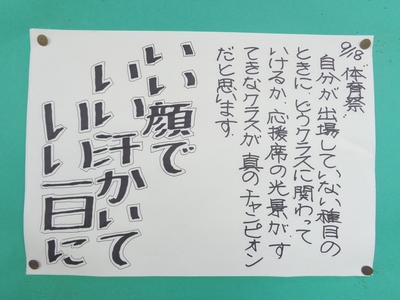 9/18 "体育祭"
自分が出場していない種目の
ときに、どうクラスに関わって
いけるか、応援席の光景がす
てきなクラスが真のチャンピオン
だと思います。
いい顔で
いい汗かいて
いい一日に